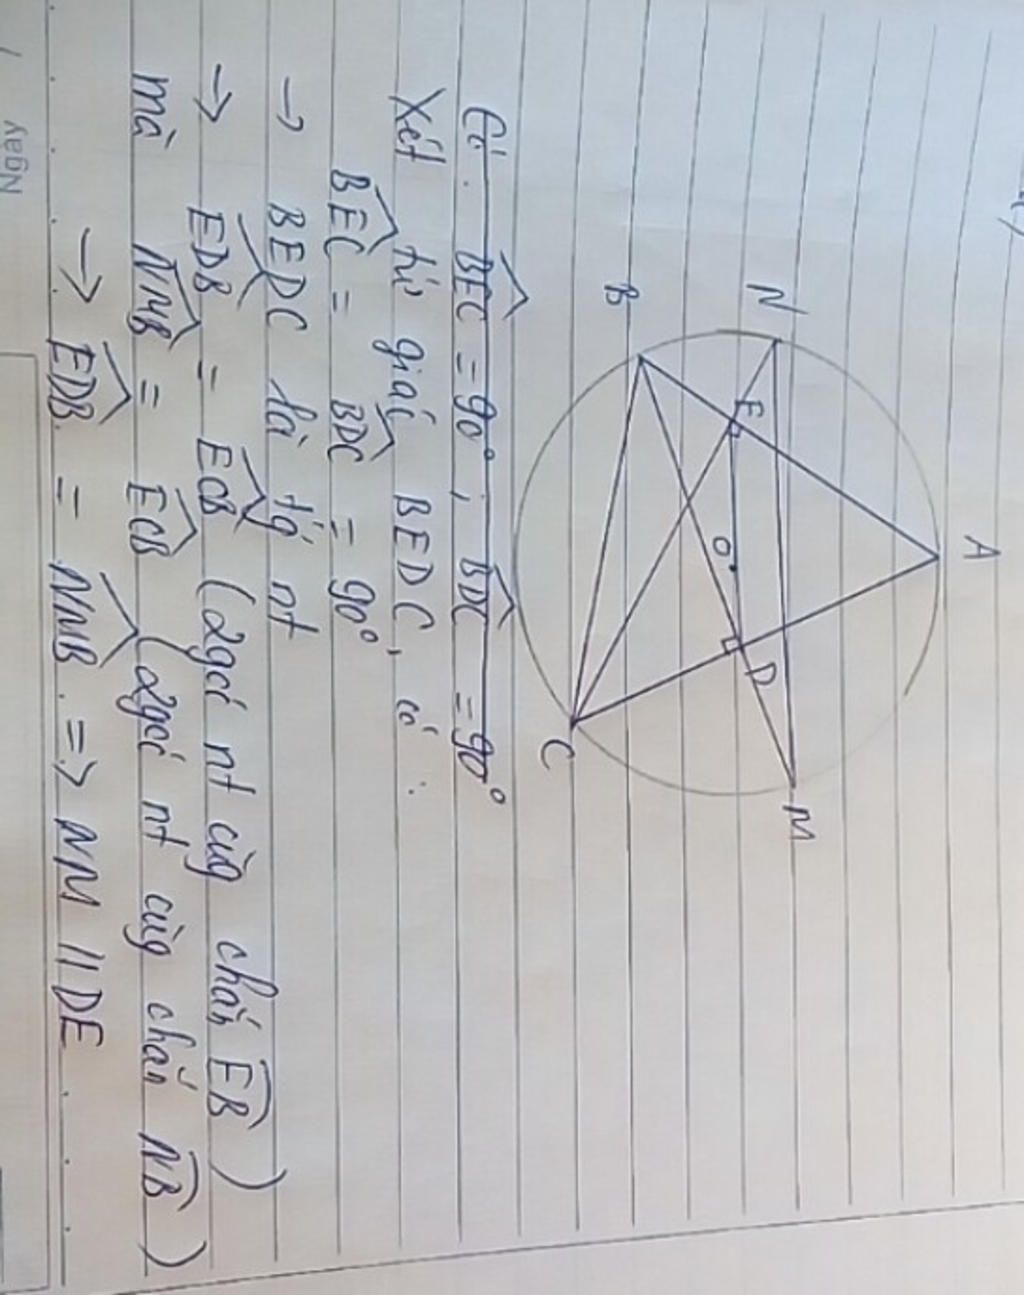 A
N
B
E
O
D
M
C
Có: BEC = 90°, BDC = 90°
Xét tứ giác BEDC, có:
BEC = BDC = 90°
→ BEDC là tg nt
→ EDB = ECB (2 góc nt cùg chắn EB)
mà NMB = ECB (2 góc nt cùg chắn NB)
→ EDB = NMB. => NM // DE.
Ngày